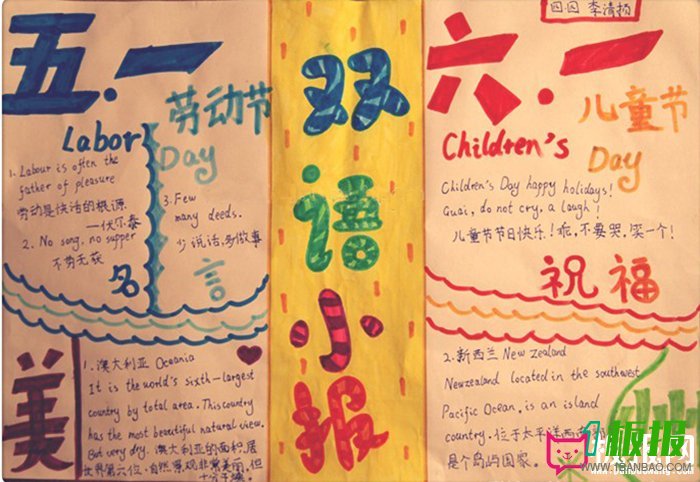 五.一
劳动节
Labor
Day
1. Labour is often the
father of pleasure
劳动是快活的根源
—伏尔泰
2. No song, no supper
不劳无获
3. Few
many deeds.
少说话,多做事
名言
双语小报
四.四 李清扬
六.一
儿童节
Children's
Day
Children's Day happy holidays!
Guai, do not cry, a laugh!
儿童节节日快乐!乖,不要哭,笑一个!
祝福
美
1. 澳大利亚 Oceania
It is the world's sixth-largest
country by total area. This country
has the most beautiful natural view.
But very dry. 澳大利亚的面积,居
世界第六位,自然景观非常美丽,但
2. 新西兰 New Zealand
Newzealand located in the southwest
Pacific Ocean, is an island
country. 位于太平洋西南部
是个岛屿国家.
板报
WWW.1BANBAO.COM